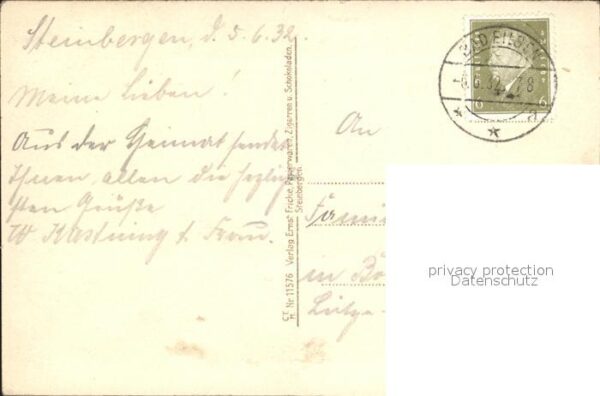 Steinbergen, d. 5.6.32.
Meine Lieben!
Aus der Heimat sendet
Ihnen allen die herzlich-
sten Grüße
W Kastning & Frau.
C.T. H. Nr 11576 Verlag Ernst Fricke, Papierwaren, Zigarren u. Schokoladen,
Steinbergen.
BAD EILSEN
6
6
An
Famil
in
privacy protection
Datenschutz